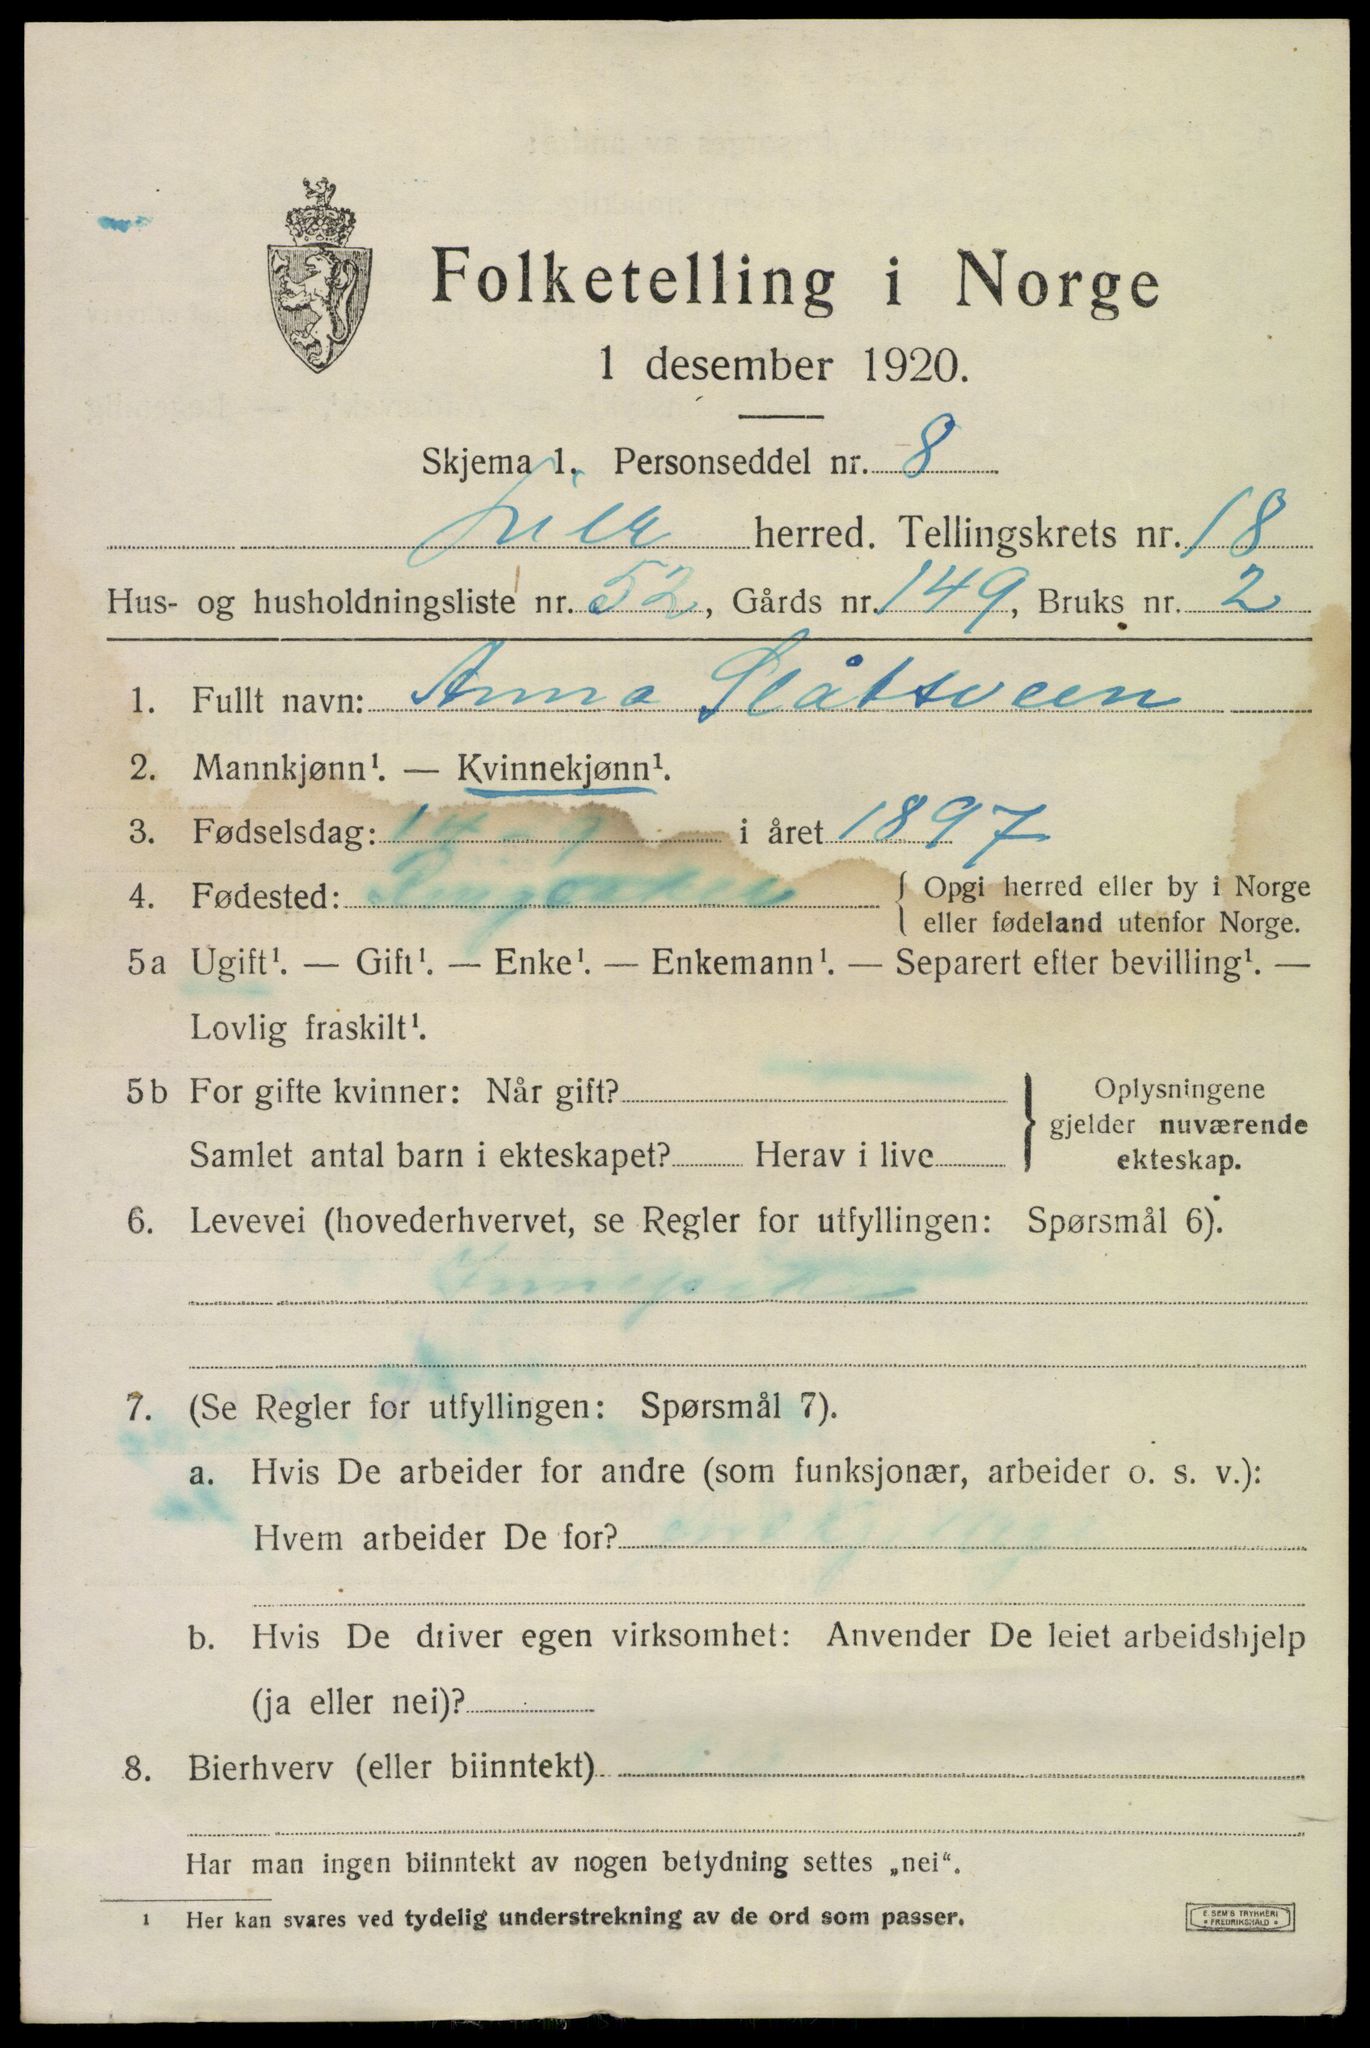 Folketelling i Norge
1 desember 1920.
Skjema 1. Personseddel nr. 8
Lier herred. Tellingskrets nr. 18
Hus- og husholdningsliste nr. 52, Gårds nr. 149, Bruks nr. 2
1. Fullt navn: Anna Slåtsveen
2. Mannkjønn¹. — Kvinnekjønn¹.
3. Fødselsdag: 14 - 9 i året 1897
4. Fødested: Ringsaker { Opgi herred eller by i Norge
eller fødeland utenfor Norge.
5a Ugift¹. — Gift¹. — Enke¹. — Enkemann¹. — Separert efter bevilling¹. —
Lovlig fraskilt¹.
5b For gifte kvinner: Når gift? } Oplysningene
gjelder nuværende
Samlet antal barn i ekteskapet? Herav i live ekteskap.
6. Levevei (hovederhvervet, se Regler for utfyllingen: Spørsmål 6).
Innepike
7. (Se Regler for utfyllingen: Spørsmål 7).
a. Hvis De arbeider for andre (som funksjonær, arbeider o. s. v.):
Hvem arbeider De for?
b. Hvis De driver egen virksomhet: Anvender De leiet arbeidshjelp
(ja eller nei)?
8. Bierhverv (eller biinntekt)
Har man ingen biinntekt av nogen betydning settes „nei“.
¹ Her kan svares ved tydelig understrekning av de ord som passer.
E. SEM'S TRYKKERI
FREDRIKSHALD